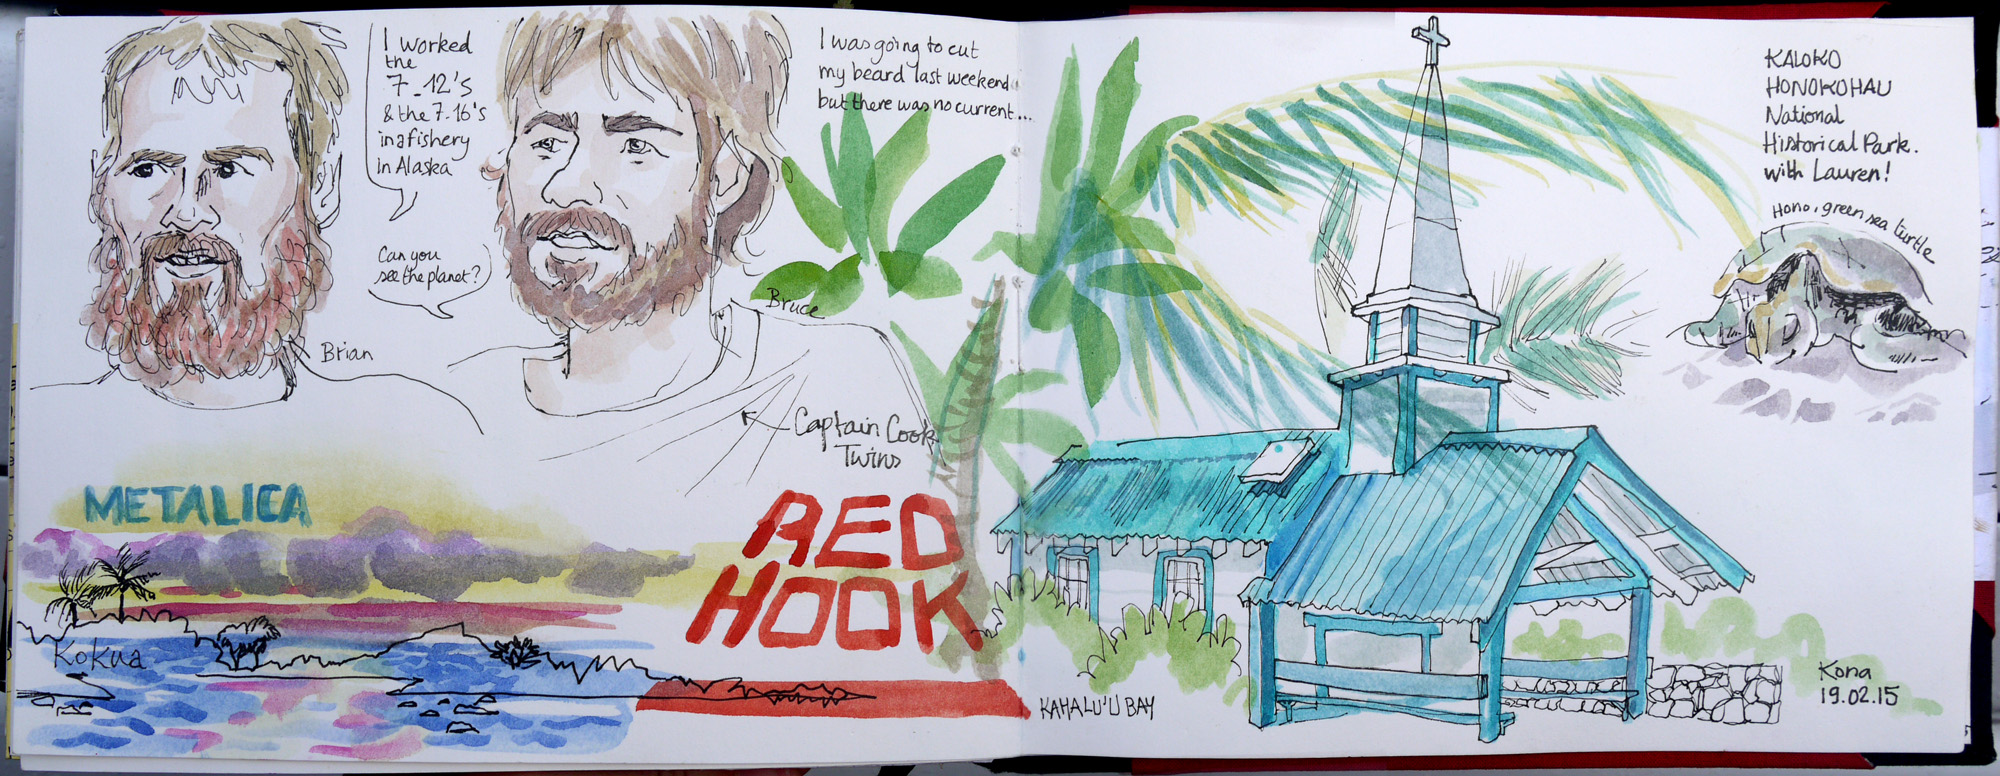 I worked
the
7-12's
& the 7-16's
in a fishery
in Alaska
Can you
see the planet?
Brian
I was going to cut
my beard last weekend
but there was no current...
Bruce
Captain Cook
Twins
METALICA
Kokua
RED
HOOK
KALOKO
HONOKOHAU
National
Historical Park.
with Lauren!
Hono, green sea turtle
KAHALU'U BAY
Kona
19.02.15